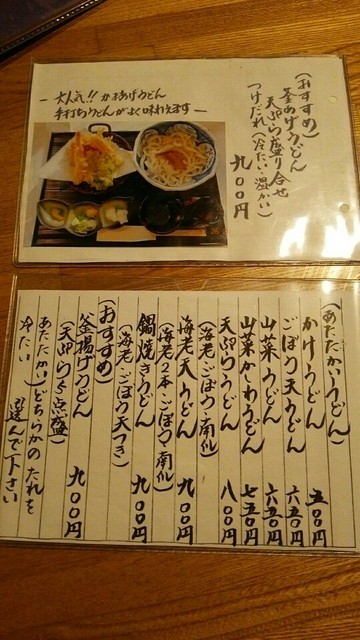 (おすすめ)
釜あげうどん
天ぷら盛り合せ
つけだれ(冷たい・温かい)
九〇〇円
ー大人気!! かまあげうどん
手打ちうどんがよく味わえますー
(あたたかいうどん)
かけうどん 五〇〇円
ごぼう天うどん 六五〇円
山菜うどん 六五〇円
山菜かしわうどん 七五〇円
天ぷらうどん 八〇〇円
(海老・ごぼう・南瓜)
海老天うどん 九〇〇円
(海老2本・ごぼう・南瓜)
鍋焼きうどん 九〇〇円
(海老・ごぼう天つき)
(おすすめ)
釜揚げうどん 九〇〇円
(天ぷら5点盛)
あたたかい
冷たい
どちらかのたれを
選んで下さい